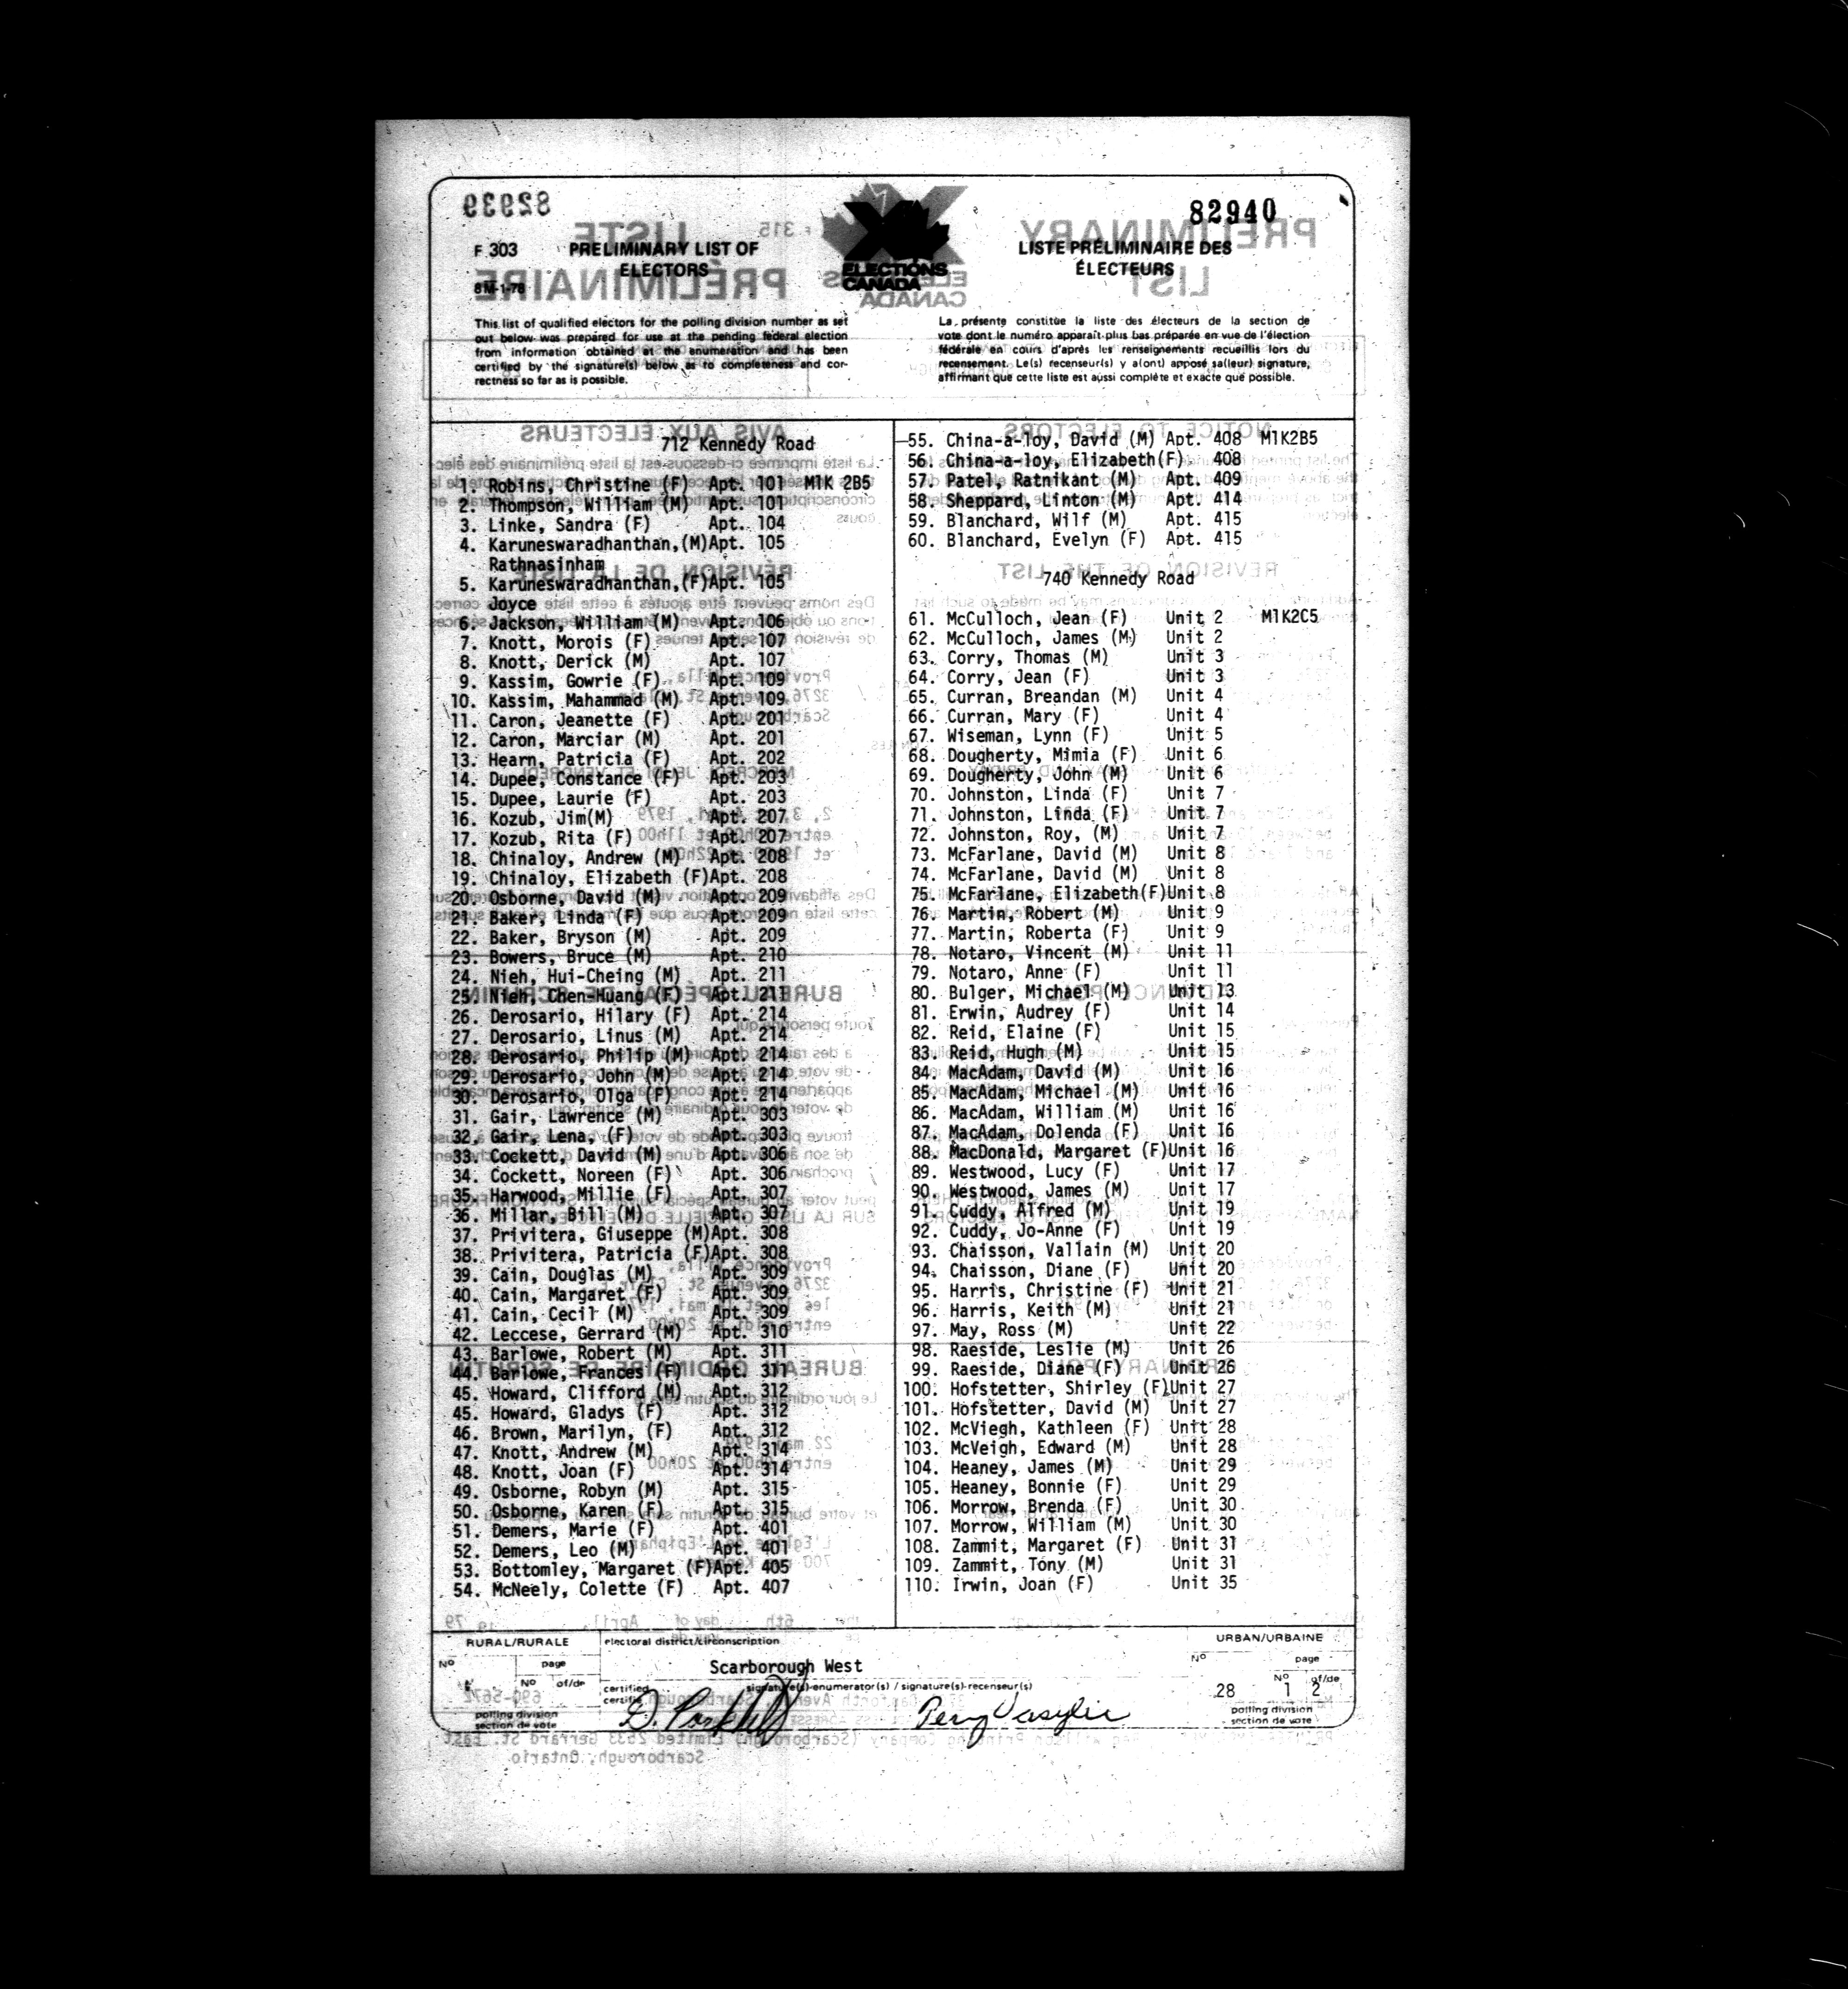 82940
F 303
PRELIMINARY LIST OF
ELECTORS
8M-1-78
ELECTIONS
CANADA
LISTE PRÉLIMINAIRE DES
ÉLECTEURS
This list of qualified electors for the polling division number as set
out below was prepared for use at the pending federal election
from information obtained at the enumeration and has been
certified by the signature(s) below as to completeness and cor-
rectness so far as is possible.
La présente constitue la liste des électeurs de la section de
vote dont le numéro apparaît plus bas préparée en vue de l'élection
fédérale en cours d'après les renseignements recueillis lors du
recensement. Le(s) recenseur(s) y a(ont) apposé sa(leur) signature,
affirmant que cette liste est aussi complète et exacte que possible.
712 Kennedy Road
1. Robins, Christine (F) Apt. 101 M1K 2B5
2. Thompson, William (M) Apt. 101
3. Linke, Sandra (F) Apt. 104
4. Karuneswaradhanthan,(M)Apt. 105
Rathnasinham
5. Karuneswaradhanthan,(F)Apt. 105
Joyce
6. Jackson, William (M) Apt. 106
7. Knott, Morois (F) Apt. 107
8. Knott, Derick (M) Apt. 107
9. Kassim, Gowrie (F) Apt. 109
10. Kassim, Mahammad (M) Apt. 109
11. Caron, Jeanette (F) Apt. 201
12. Caron, Marciar (M) Apt. 201
13. Hearn, Patricia (F) Apt. 202
14. Dupee, Constance (F) Apt. 203
15. Dupee, Laurie (F) Apt. 203
16. Kozub, Jim(M) Apt. 207
17. Kozub, Rita (F) Apt. 207
18. Chinaloy, Andrew (M) Apt. 208
19. Chinaloy, Elizabeth (F)Apt. 208
20. Osborne, David (M) Apt. 209
21. Baker, Linda (F) Apt. 209
22. Baker, Bryson (M) Apt. 209
23. Bowers, Bruce (M) Apt. 210
24. Nieh, Hui-Cheing (M) Apt. 211
25. Nieh, Chen-Huang (F) Apt. 211
26. Derosario, Hilary (F) Apt. 214
27. Derosario, Linus (M) Apt. 214
28. Derosario, Philip (M) Apt. 214
29. Derosario, John (M) Apt. 214
30. Derosario, Olga (F) Apt. 214
31. Gair, Lawrence (M) Apt. 303
32. Gair, Lena, (F) Apt. 303
33. Cockett, David (M) Apt. 306
34. Cockett, Noreen (F) Apt. 306
35. Harwood, Millie (F) Apt. 307
36. Millar, Bill (M) Apt. 307
37. Privitera, Giuseppe (M)Apt. 308
38. Privitera, Patricia (F)Apt. 308
39. Cain, Douglas (M) Apt. 309
40. Cain, Margaret (F) Apt. 309
41. Cain, Cecil (M) Apt. 309
42. Leccese, Gerrard (M) Apt. 310
43. Barlowe, Robert (M) Apt. 311
44. Barlowe, Frances (F) Apt. 311
45. Howard, Clifford (M) Apt. 312
45. Howard, Gladys (F) Apt. 312
46. Brown, Marilyn, (F) Apt. 312
47. Knott, Andrew (M) Apt. 314
48. Knott, Joan (F) Apt. 314
49. Osborne, Robyn (M) Apt. 315
50. Osborne, Karen (F) Apt. 315
51. Demers, Marie (F) Apt. 401
52. Demers, Leo (M) Apt. 401
53. Bottomley, Margaret (F)Apt. 405
54. McNeely, Colette (F) Apt. 407
55. China-a-loy, David (M) Apt. 408 M1K2B5
56. China-a-loy, Elizabeth(F) 408
57. Patel, Ratnikant (M) Apt. 409
58. Sheppard, Linton (M) Apt. 414
59. Blanchard, Wilf (M) Apt. 415
60. Blanchard, Evelyn (F) Apt. 415
740 Kennedy Road
61. McCulloch, Jean (F) Unit 2 M1K2C5
62. McCulloch, James (M) Unit 2
63. Corry, Thomas (M) Unit 3
64. Corry, Jean (F) Unit 3
65. Curran, Breandan (M) Unit 4
66. Curran, Mary (F) Unit 4
67. Wiseman, Lynn (F) Unit 5
68. Dougherty, Mimia (F) Unit 6
69. Dougherty, John (M) Unit 6
70. Johnston, Linda (F) Unit 7
71. Johnston, Linda (F) Unit 7
72. Johnston, Roy, (M) Unit 7
73. McFarlane, David (M) Unit 8
74. McFarlane, David (M) Unit 8
75. McFarlane, Elizabeth(F)Unit 8
76. Martin, Robert (M) Unit 9
77. Martin, Roberta (F) Unit 9
78. Notaro, Vincent (M) Unit 11
79. Notaro, Anne (F) Unit 11
80. Bulger, Michael (M) Unit 13
81. Erwin, Audrey (F) Unit 14
82. Reid, Elaine (F) Unit 15
83. Reid, Hugh (M) Unit 15
84. MacAdam, David (M) Unit 16
85. MacAdam, Michael (M) Unit 16
86. MacAdam, William (M) Unit 16
87. MacAdam, Dolenda (F) Unit 16
88. MacDonald, Margaret (F)Unit 16
89. Westwood, Lucy (F) Unit 17
90. Westwood, James (M) Unit 17
91. Cuddy, Alfred (M) Unit 19
92. Cuddy, Jo-Anne (F) Unit 19
93. Chaisson, Vallain (M) Unit 20
94. Chaisson, Diane (F) Unit 20
95. Harris, Christine (F) Unit 21
96. Harris, Keith (M) Unit 21
97. May, Ross (M) Unit 22
98. Raeside, Leslie (M) Unit 26
99. Raeside, Diane (F) Unit 26
100. Hofstetter, Shirley (F)Unit 27
101. Hofstetter, David (M) Unit 27
102. McViegh, Kathleen (F) Unit 28
103. McVeigh, Edward (M) Unit 28
104. Heaney, James (M) Unit 29
105. Heaney, Bonnie (F) Unit 29
106. Morrow, Brenda (F) Unit 30
107. Morrow, William (M) Unit 30
108. Zammit, Margaret (F) Unit 31
109. Zammit, Tony (M) Unit 31
110. Irwin, Joan (F) Unit 35
RURAL/RURALE
Nº page
Nº of/de
polling division
section de vote
electoral district/circonscription
Scarborough West
certified
certifié
signature(s)-enumerator(s) / signature(s)-recenseur(s)
URBAN/URBAINE
Nº page
Nº of/de
28 1 2
polling division
section de vote